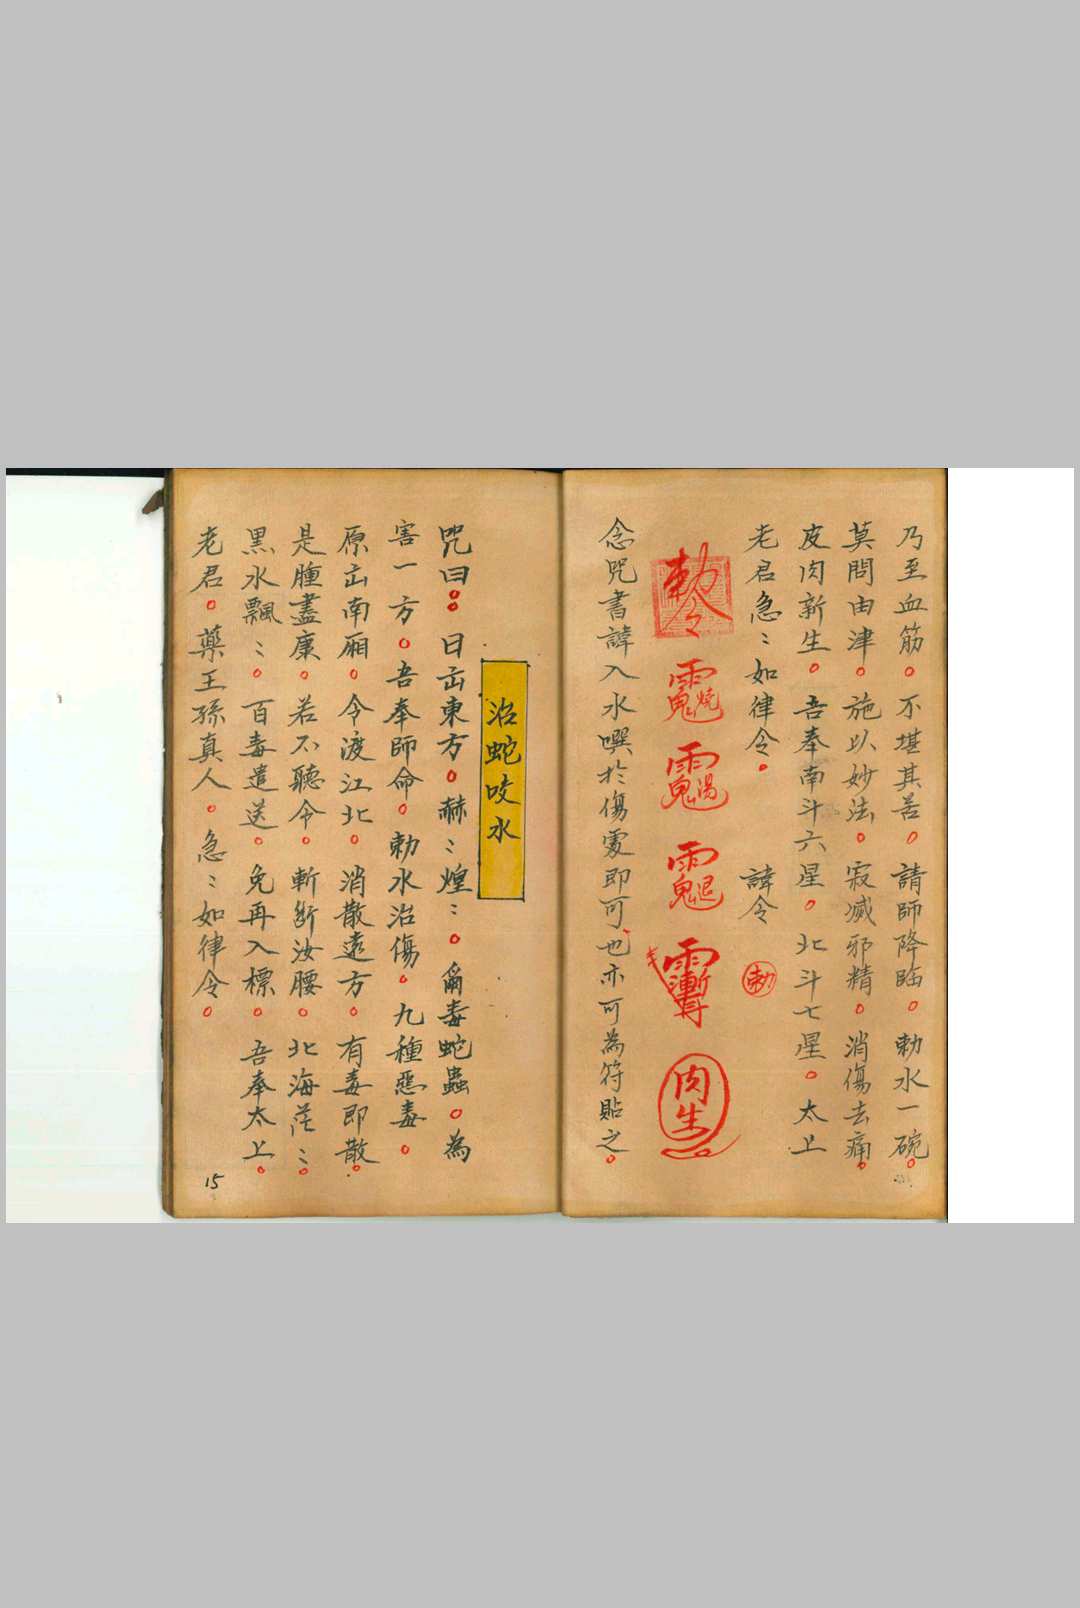 乃至血筋。不堪其苦。請師降臨。勅水一碗。
莫問由津。施以妙法。寂滅邪精。消傷去痛。
皮肉新生。吾奉南斗六星。北斗七星。太上
老君急〻如律令。 諱令 勅
勅令 肉生
念咒書諱入水噀於傷處即可也亦可為符貼之。
治蛇咬水
咒曰。。日出東方。赫〻煌〻。爾毒蛇蟲。為
害一方。吾奉師命。勅水治傷。九種惡毒。
原出南厢。令渡江北。消散遠方。有毒即散。
是腫盡康。若不聽令。斬斷汝腰。北海茫〻。
黑水飄〻。百毒遣送。免再入標。吾奉太上。
老君。藥王孫真人。急〻如律令。
15